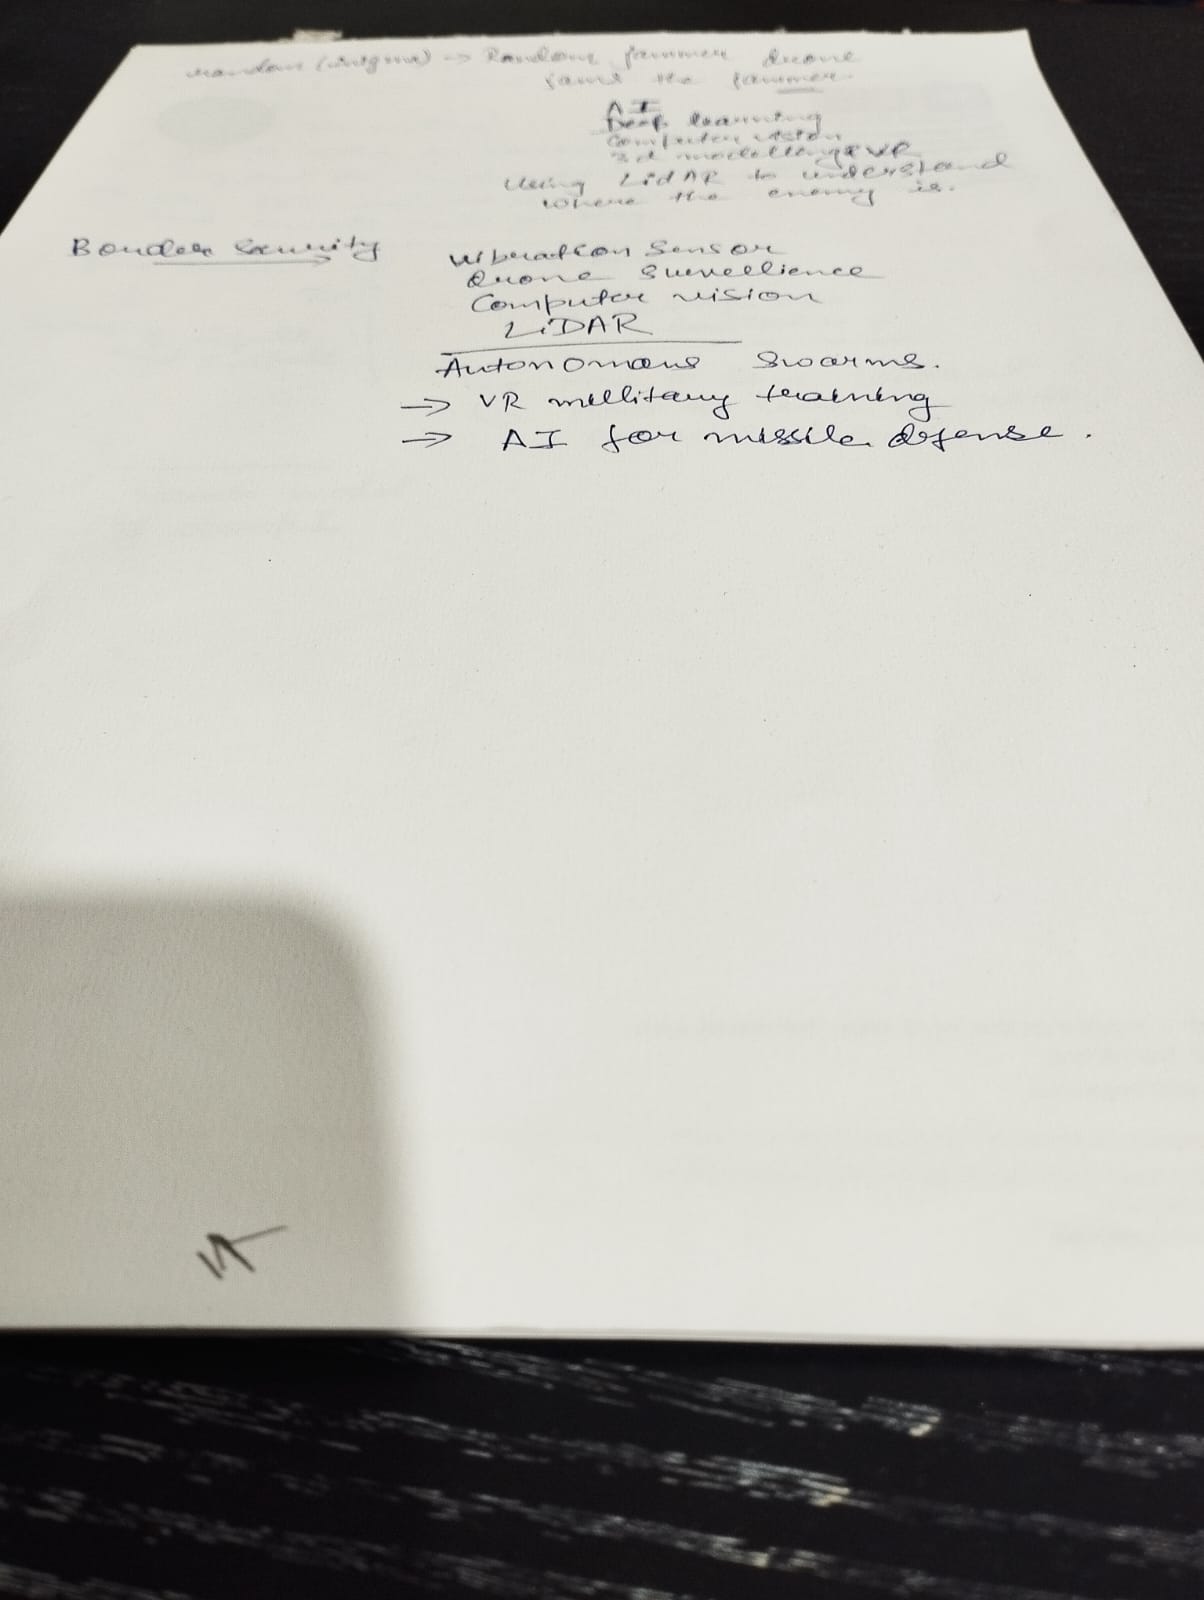 random (enigma) → Random jammer drone
jams the jammer.
AI
Deep learning
Computer vision
3d modelling & VR
Using LidAR to understand
where the enemy is.
Border Security
vibration Sensor
drone surveellience
Computer vision
LiDAR
Autonomous Swarms.
→ VR millitary training
→ AI for missile defense.